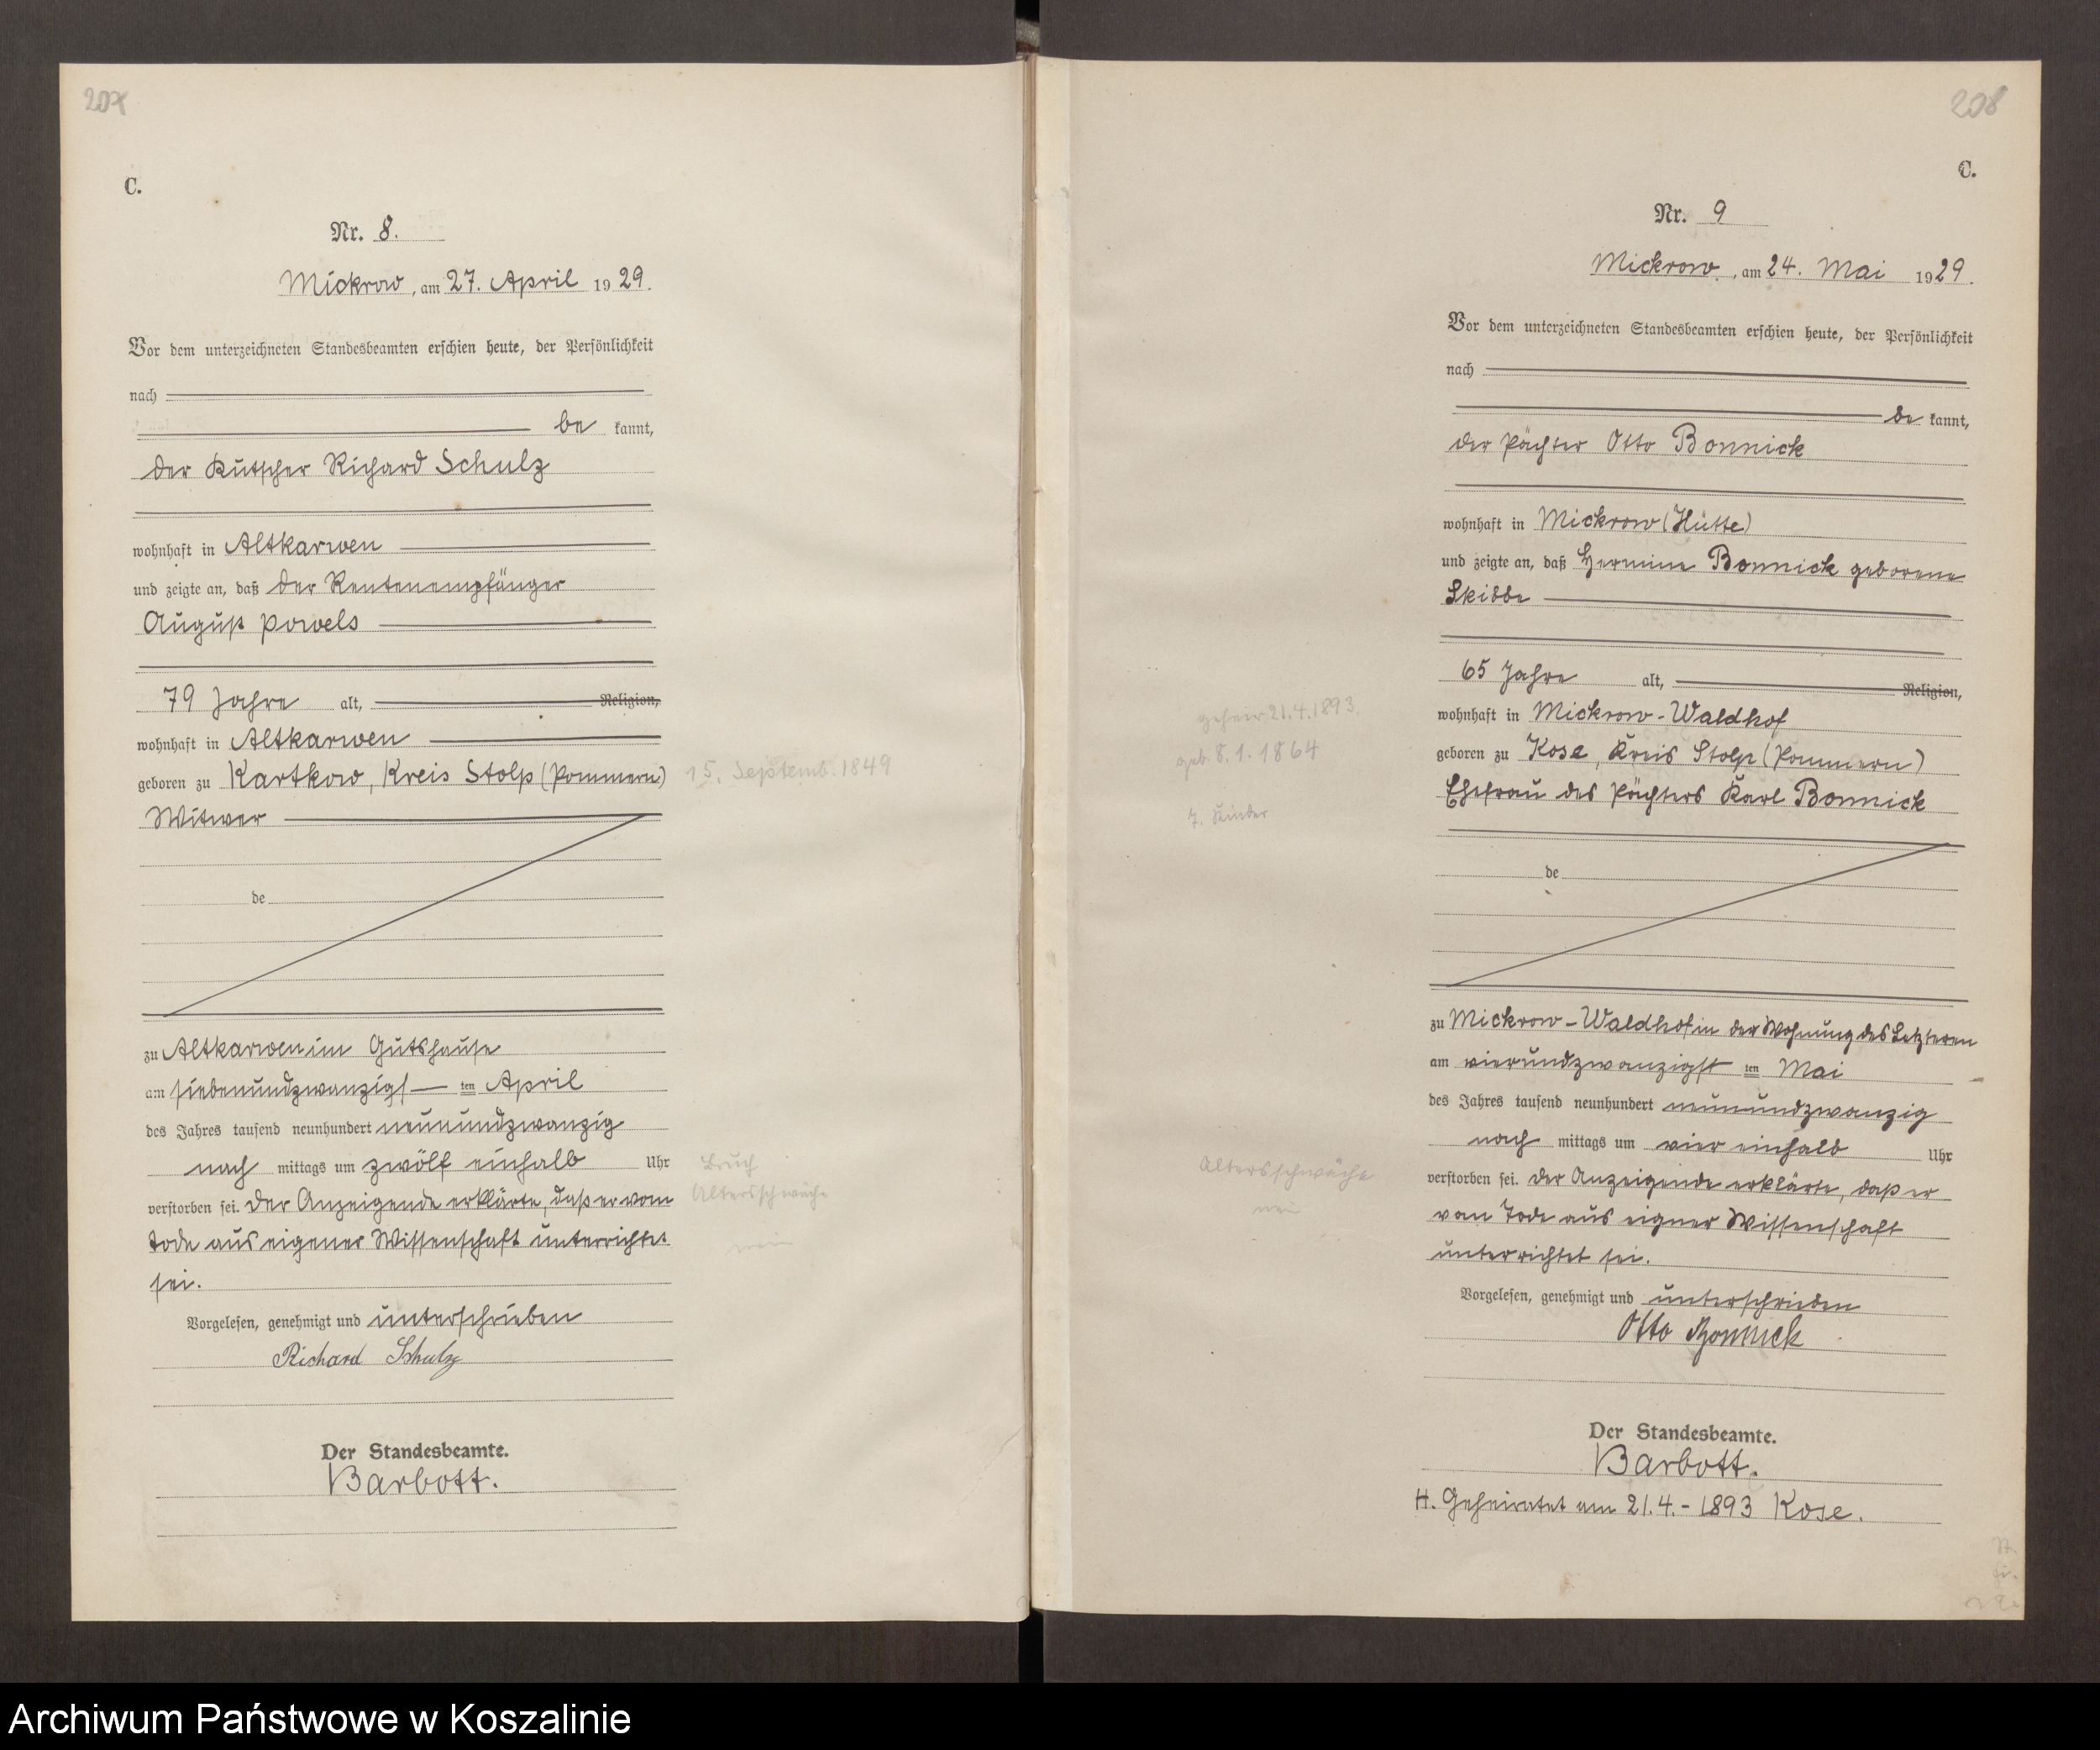 207
C.
Nr. 8.
Mickrow, am 27. April 1929.
Vor dem unterzeichneten Standesbeamten erschien heute, der Persönlichkeit
nach
be kannt,
der Kutscher Richard Schulz
wohnhaft in Altkarwen
und zeigte an, daß der Rentenempfänger
August Powels
79 Jahre alt, Religion,
wohnhaft in Altkarwen
geboren zu Kartkow, Kreis Stolp (Pommern) 15. Septemb. 1849
Witwer
de
zu Altkarwen im Gutshause
am siebenundzwanzigs ten April
des Jahres tausend neunhundert neunundzwanzig
nach mittags um zwölf einhalb Uhr Bruch
Altersschwäche
verstorben sei. Der Anzeigende erklärte, daß er vom
Tode aus eigener Wissenschaft unterrichtet nein
sei.
Vorgelesen, genehmigt und unterschrieben
Richard Schulz
Der Standesbeamte.
Barbott.
208
C.
Nr. 9
Mickrow, am 24. Mai 1929.
Vor dem unterzeichneten Standesbeamten erschien heute, der Persönlichkeit
nach
be kannt,
der Pächter Otto Bonnick
wohnhaft in Mickrow (Hütte)
und zeigte an, daß Hermine Bonnick geborene
Skibbe
65 Jahre alt, Religion,
geheir 21.4.1893.
wohnhaft in Mickrow-Waldhof
geb. 8.1.1864 geboren zu Kose, Kreis Stolp (Pommern)
Ehefrau des Pächters Karl Bonnick
7. Kinder
de
zu Mickrow-Waldhof in der Wohnung des Letzteren
am vierundzwanzigst ten Mai
des Jahres tausend neunhundert neunundzwanzig
nach mittags um vier einhalb Uhr
Altersschwäche verstorben sei. Der Anzeigende erklärte, daß er
nein vom Tode aus eigner Wissenschaft
unterrichtet sei.
Vorgelesen, genehmigt und unterschrieben
Otto Bonnick
Der Standesbeamte.
Barbott.
H. Geheiratet am 21.4.-1893 Kose.
Archiwum Państwowe w Koszalinie